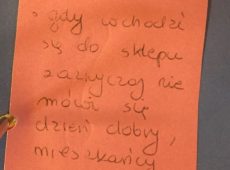 - gdy wchodzi
się do sklepu
zazwyczaj nie
mówi się
dzień dobry,
mieszkańcy